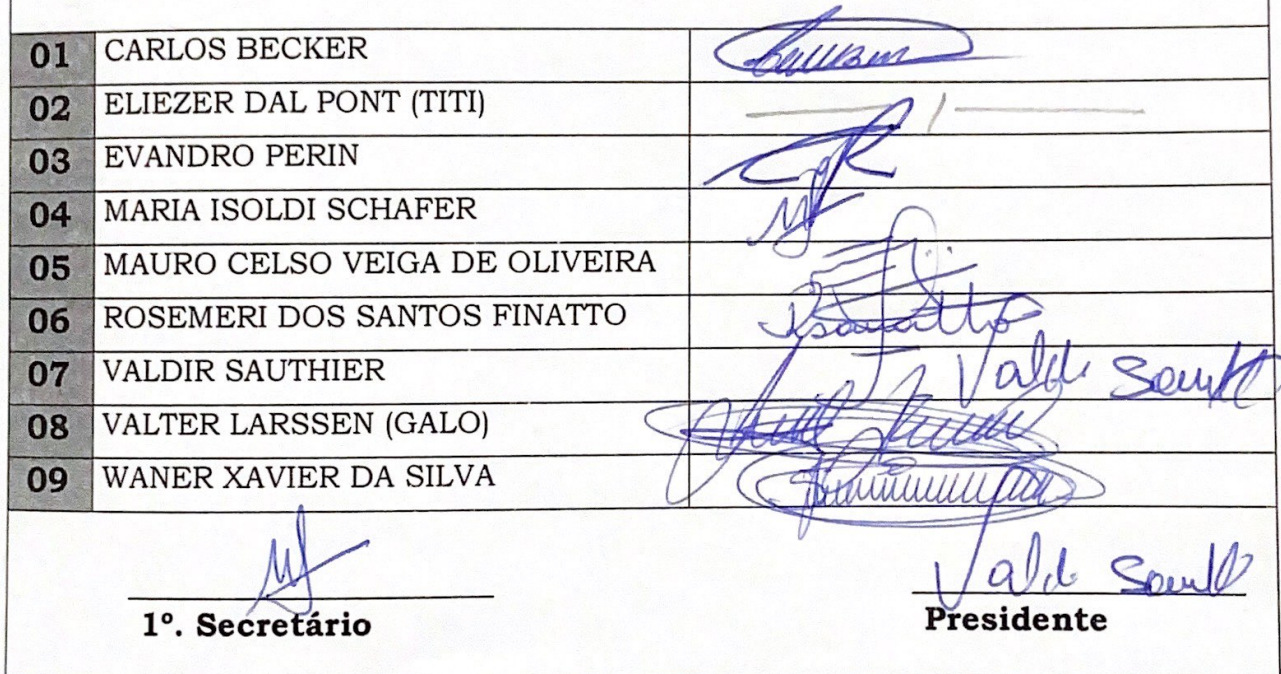 01 CARLOS BECKER
02 ELIEZER DAL PONT (TITI)
03 EVANDRO PERIN
04 MARIA ISOLDI SCHAFER
05 MAURO CELSO VEIGA DE OLIVEIRA
06 ROSEMERI DOS SANTOS FINATTO
07 VALDIR SAUTHIER
08 VALTER LARSSEN (GALO)
09 WANER XAVIER DA SILVA
1º. Secretário
Presidente